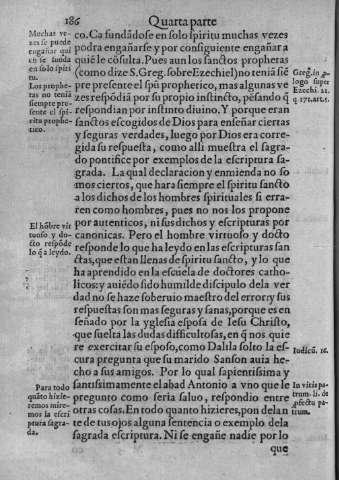 186
Quarta parte
co. Ca fundãdose en solo spiritu muchas vezes
podra engañarse y por consiguiente engañar a
quiẽ le cõsulta. Pues aun los sanctos propheras
(como dize S. Greg. sobre Ezechiel) no teniã siẽ
pre presente el spũ propherico, mas algunas ve
zes respõdiã por su propio instincto, pẽsando q̃
respondian por instinto diuino. Y porque eran
sanctos escogidos de Dios para enseñar ciertas
y seguras verdades, luego por Dios era corre-
gida su respuesta, como alli muestra el sagra-
do pontifice por exemplos de la escriptura sa-
grada. La qual declaracion y enmienda no so
mos ciertos, que hara siempre el spiritu sancto
a los dichos de los hombres spirituales si erra-
ren como hombres, pues no nos los propone
por autenticos, ni sus dichos y escripturas por
canonicas. Pero el hombre virtuoso y docto
responde lo que ha leydo en las escripturas san
ctas, que estan llenas de spiritu sancto, y lo que
ha aprendido en la escuela de doctores catho-
licos: y auiẽdo sido humilde discipulo dela ver
dad no se haze soberuio maestro del error: y sus
respuestas son mas seguras y sanas, porque es en
señado por la yglesia esposa de Iesu Christo,
que suelta las dudas difficultosas, en q̃ nos quie
re exercitar su esposo, como Dalila solto la es-
cura pregunta que su marido Sanson auia he-
cho a sus amigos. Por lo qual sapientissima y
santissimamente el abad Antonio a vno que le
pregunto como seria saluo, respondio entre
otras cosas. En todo quanto hizieres, pon delan
te de tus ojos alguna sentencia o exemplo de la
sagrada escriptura. Ni se engañe nadie por lo
que
Muchas ve-
zes se puede
engañar qui
en se funda
en solo spiri
tu.
Los prophe-
tas no teniã
siempre pre-
sente el spi-
ritu prophe-
tico.
El hõbre vir
tuoso y do-
cto respõde
lo q̃ a leydo.
Para todo
quãto hizie-
remos mire-
mos la escri
ptura sagra-
da.
Greg. in p
logo super
Ezechi. 22.
q 171. art. 5.
Iudicũ. 16.
In vitis pa
trum. li. de
pfectu pa-
trum.